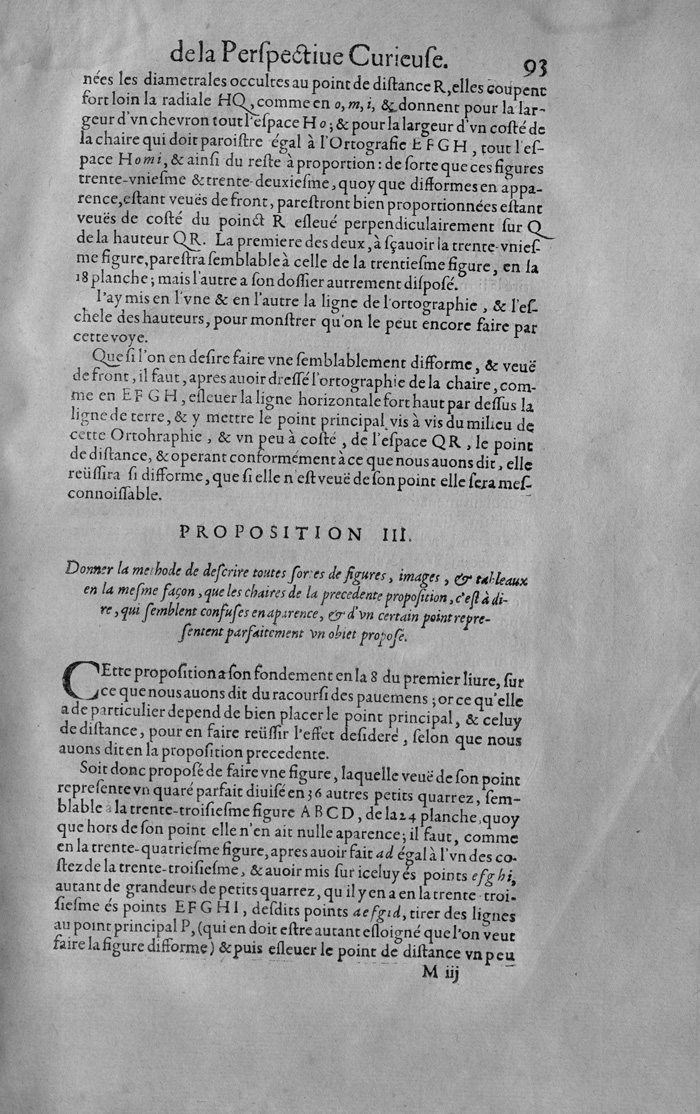 de la Perſpectiue Curieuſe. 93
nées les diametrales occultes au point de diſtance R, elles coupent
fort loin la radiale HQ, comme en o, m, i, & donnent pour la lar-
geur d'vn chevron tout l'eſpace Ho; & pour la largeur d'vn coſté de
la chaire qui doit paroiſtre égal à l'Ortografie EFGH, tout l'eſ-
pace Homi, & ainſi du reſte à proportion: de ſorte que ces figures
trente-vnieſme & trente-deuxieſme, quoy que difformes en appa-
rence, eſtant veuës de front, pareſtront bien proportionnées eſtant
veuës de coſté du poinct R eſleué perpendiculairement ſur Q
de la hauteur QR. La premiere des deux, à ſçauoir la trente-vnieſ-
me figure, pareſtra ſemblable à celle de la trentieſme figure, en la
18 planche; mais l'autre a ſon doſſier autrement diſpoſé.
I'ay mis en l'vne & en l'autre la ligne de l'ortographie, & l'eſ-
chele des hauteurs, pour monſtrer qu'on le peut encore faire par
cette voye.
Que ſi l'on en deſire faire vne ſemblablement difforme, & veuë
de front, il faut, apres auoir dreſſé l'ortographie de la chaire, com-
me en EFGH, eſleuer la ligne horizontale fort haut par deſſus la
ligne de terre, & y mettre le point principal vis à vis du milieu de
cette Ortohraphie, & vn peu à coſté, de l'eſpace QR, le point
de diſtance, & operant conformément à ce que nous auons dit, elle
reüſſira ſi difforme, que ſi elle n'eſt veuë de ſon point elle ſera meſ-
connoiſſable.
PROPOSITION III.
Donner la methode de deſcrire toutes ſortes de figures, images, & tableaux
en la meſme façon, que les chaires de la precedente propoſition, c'eſt à di-
re, qui ſemblent confuſes en aparence, & d'vn certain point repre-
ſentent parfaitement vn obiet propoſé.
CEtte propoſition a ſon fondement en la 8 du premier liure, ſur
ce que nous auons dit du racourſi des pauemens; or ce qu'elle
a de particulier depend de bien placer le point principal, & celuy
de diſtance, pour en faire reüſſir l'effet deſideré, ſelon que nous
auons dit en la propoſition precedente.
Soit donc propoſé de faire vne figure, laquelle veuë de ſon point
repreſente vn quaré parfait diuiſé en 36 autres petits quarrez, ſem-
blable à la trente-troiſieſme figure ABCD, de la 24 planche, quoy
que hors de ſon point elle n'en ait nulle aparence; il faut, comme
en la trente-quatrieſme figure, apres auoir fait ad égal à l'vn des co-
ſtez de la trente-troiſieſme, & auoir mis ſur iceluy és points efghi,
autant de grandeurs de petits quarrez, qu'il y en a en la trente-troi-
ſieſme és points EFGHI, deſdits points aefgid, tirer des lignes
au point principal P, (qui en doit eſtre autant eſloigné que l'on veut
faire la figure difforme) & puis eſleuer le point de diſtance vn peu
M iij